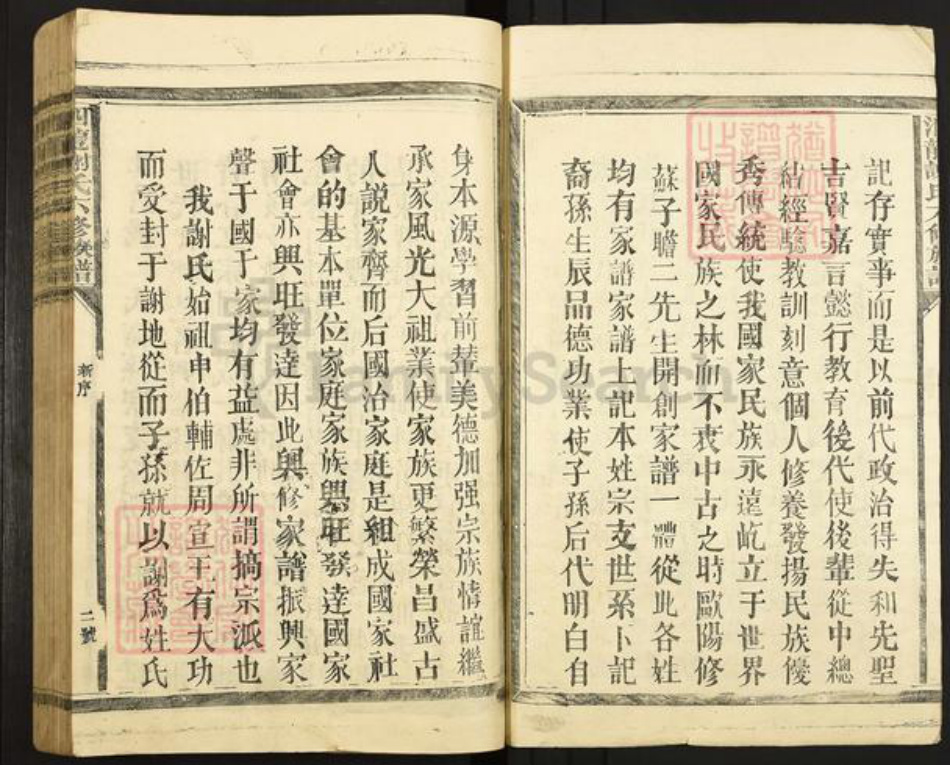 記存實事而是以前代政治得失和先聖
吉賢嘉言懿行教育後代使後輩從中總
結經驗教訓刻意個人修養發揚民族優
秀傳統使我國家民族永遠屹立于世界
國家民族之林而不丧中古之時歐陽修
蘇子瞻二先生開創家譜一體從此各姓
均有家譜家譜上記本姓宗支世系卜記
裔孫生辰品德功業使子孫后代明白自
身本源學習前輩美德加强宗族情誼繼
承家風光大祖業使家族更繁榮昌盛古
人説家齊而后國治家庭是組成國家社
會的基本單位家庭家族興旺發達國家
社會亦興旺發達因此興修家譜振興家
聲于國于家均有益處非所謂搞宗派也
我謝氏始祖申伯輔佐周宣王有大功
而受封于謝地從而子孫就以謝爲姓氏
謝氏六修族譜
新序
二號
FamilySearch